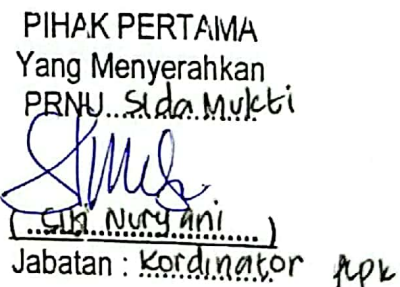 PIHAK PERTAMA
Yang Menyerahkan
PRNU Sida Mukti
( Siti Nuryani )
Jabatan : Kordinator Apk